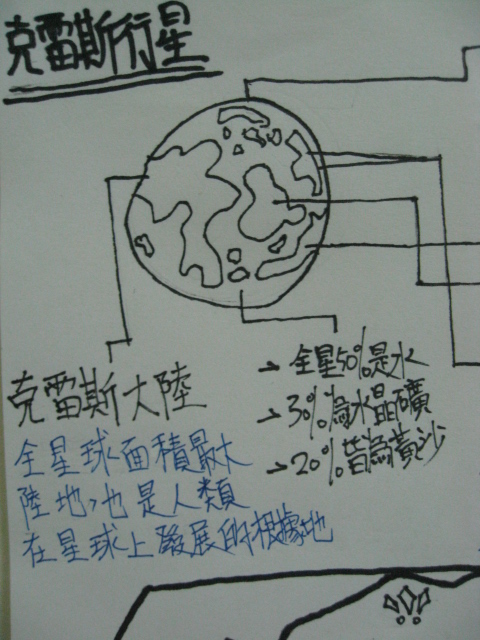 克雷斯行星
→ 全星50%是水
→ 30%為水晶礦
→ 20%皆為黃沙
克雷斯大陸
全星球面積最大
陸地,也是人類
在星球上發展的根據地